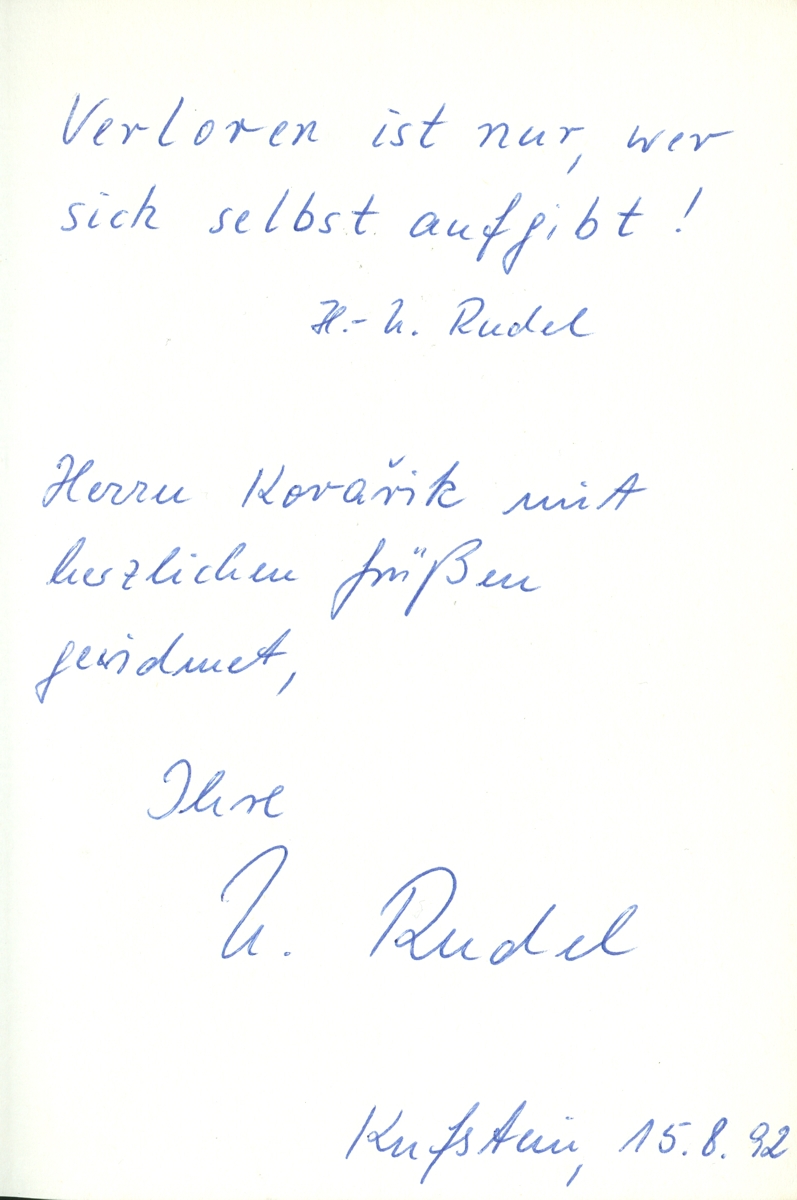 Verloren ist nur, wer
sich selbst aufgibt!
H.-U. Rudel
Herrn Kovařik mit
herzlichen Grüßen
gewidmet,
Ihre
U. Rudel
Kufstein, 15.8.92